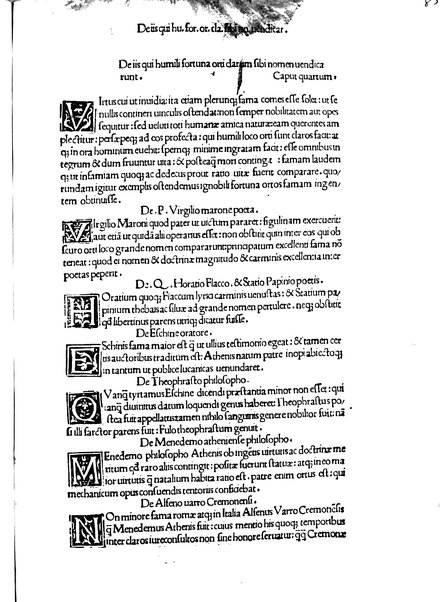 De iis qui hu. for. or. cla. sibi no. uenditar.
De iis qui humili fortuna orti claram sibi nomen uendica
runt. Caput quartum.
VIrtus cui ut inuidia: ita etiam plerunq; fama comes esse solet: ut se
nullis contineri uinculis ostendat: non semper nobilitatem aut opes
sequitur: sed ueluti tori humanæ amica naturæ eam quærentes am
plectitur: persæpeq; ad eos profecta: qui humili loco orti sunt claros facit: at
q; in ora hominum euehit: spemq; minime ingratam facit: esse omnibus in
tegrum & dum fruuntur uita: & posteaq; mori contingit: famam laudem
q; ut infamiam quoq; ac dedecus prout ratio uitæ fuerit comparare. quo/
rundam igitur exemplis ostendemus ignobili fortuna ortos famam ingen/
tem obtinuisse.
De. P. Virgilio marone poeta.
VIrgilio Maroni quod pater ut uictum pararet: figulinam exercuerit:
aut etiã ut quidã alii operarius esset: non obstitit quin inter eos qui ob
scuro orti loco grande nomen compararunt: principatum excellenti fama nõ
teneat: quod ei nomen & doctrinæ magnitudo & carminis excellentia inter
poetas peperit.
De. Q. Horatio Flacco. & Statio Papinio poetis.
HOratium quoq; Flaccum lyrici carminis uenustas: & Statium pa/
pinium thebais ac siluæ ad grande nomen pertulere. neq; obstitit
qđ libertinus parens utriq; dicatur fuisse.
De Eschine oratore.
ESchinis fama maior est q̃ ut ullius testimonio egeat: & tamen cer
tis auctoribus traditum est: Athenis natum patre inopi abiectoq;
in tantum ut publice lucanicas uenundaret.
De Theophrasto philosopho.
QVanq̃ tyrtamus Eschine dicendi præstantia minor non esset: qui
tanq̃ diuinitus datum loquendi genus haberet Theophrastus po/
stea fuit appellatus: tamen nihilo sanguinis genere nobilior fuit: nã
si illi sarctor parens fuit: Fulo theophrastum genuit.
De Menedemo atheniense philosopho.
MEnedemo philosopho Athenis ob ingẽns uirtutis ac doctrinæ me
ritum qđ raro aliis contingit: positæ fuerunt statuæ: atq; in eo ma
ior uirtutis q̃ natalium habita ratio est. patre enim ortus est: qui
mechanicum opus consuendis tentoriis conficiebat.
De Alfeno uarro Cremonensi.
NOn minore fama romæ atq; in Italia Alfenus Varro Cremonẽsis
q̃ Menedemus Athenis fuit: cuius mentio his quoq; temporibus
inter claros iureconsultos non sine honore seruatur: q̃q̃ Cremonæ